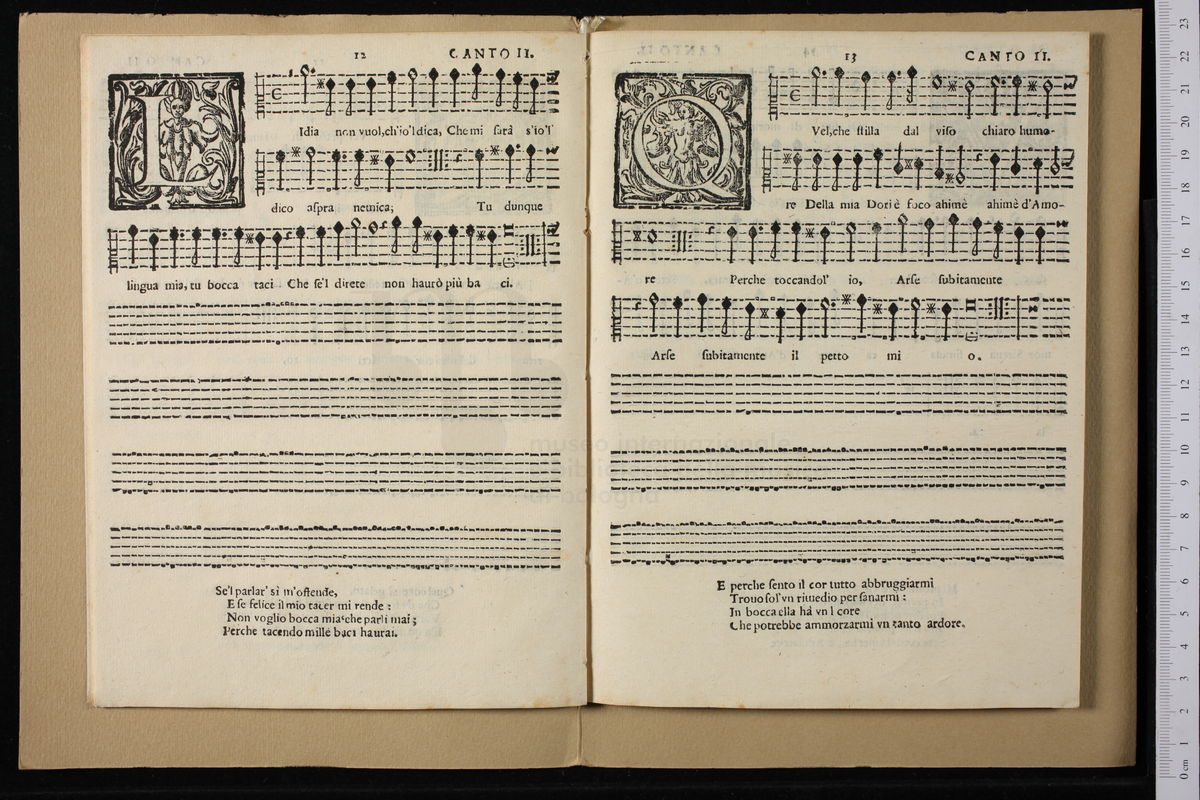 12 CANTO II.
L
Idia non vuol, ch'io'l dica, Che mi sarà s'io'l
dico aspra nemica; Tu dunque
lingua mia, tu bocca taci Che se'l direte non haurò più ba ci.
Se'l parlar' sì m'offende,
E se felice il mio tacer mi rende :
Non voglio bocca mia che parli mai ;
Perche tacendo mille baci haurai.
13 CANTO II.
Q
Vel, che stilla dal viso chiaro humo-
re Della mia Dori è foco ahimè ahimè d'Amo-
re Perche toccandol' io, Arse subitamente
Arse subitamente il petto mi o.
E perche sento il cor tutto abbruggiarmi
Trouo sol' vn rimedio per sanarmi :
In bocca ella hà vn l core
Che potrebbe ammorzarmi vn tanto ardore.
museo internazionale
bologna
0 cm 1 2 3 4 5 6 7 8 9 10 11 12 13 14 15 16 17 18 19 20 21 22 23